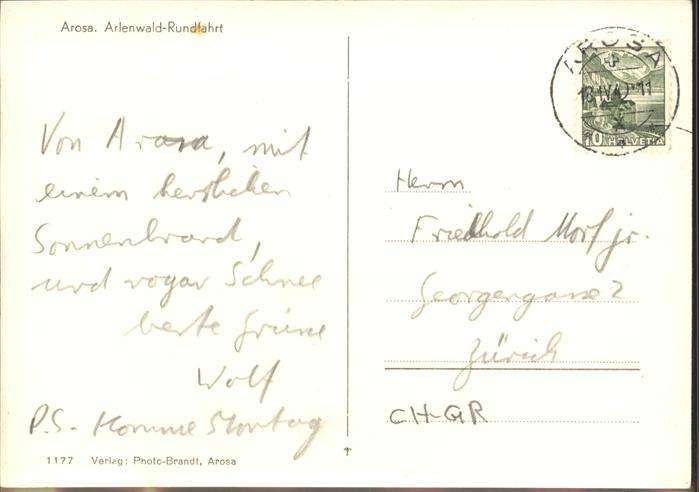 Arosa. Arlenwald-Rundfahrt
AROSA
10 HELVETIA
Von Arosa, mit
einem herrlichen
Sonnenbrand,
und sogar Schnee
beste Grüsse
Wolf
P.S. Komme Montag
Herrn
Friedhold Morf jr.
Georgengasse 2
Zürich
CH-GR
1177 Verlag: Photo-Brandt, Arosa